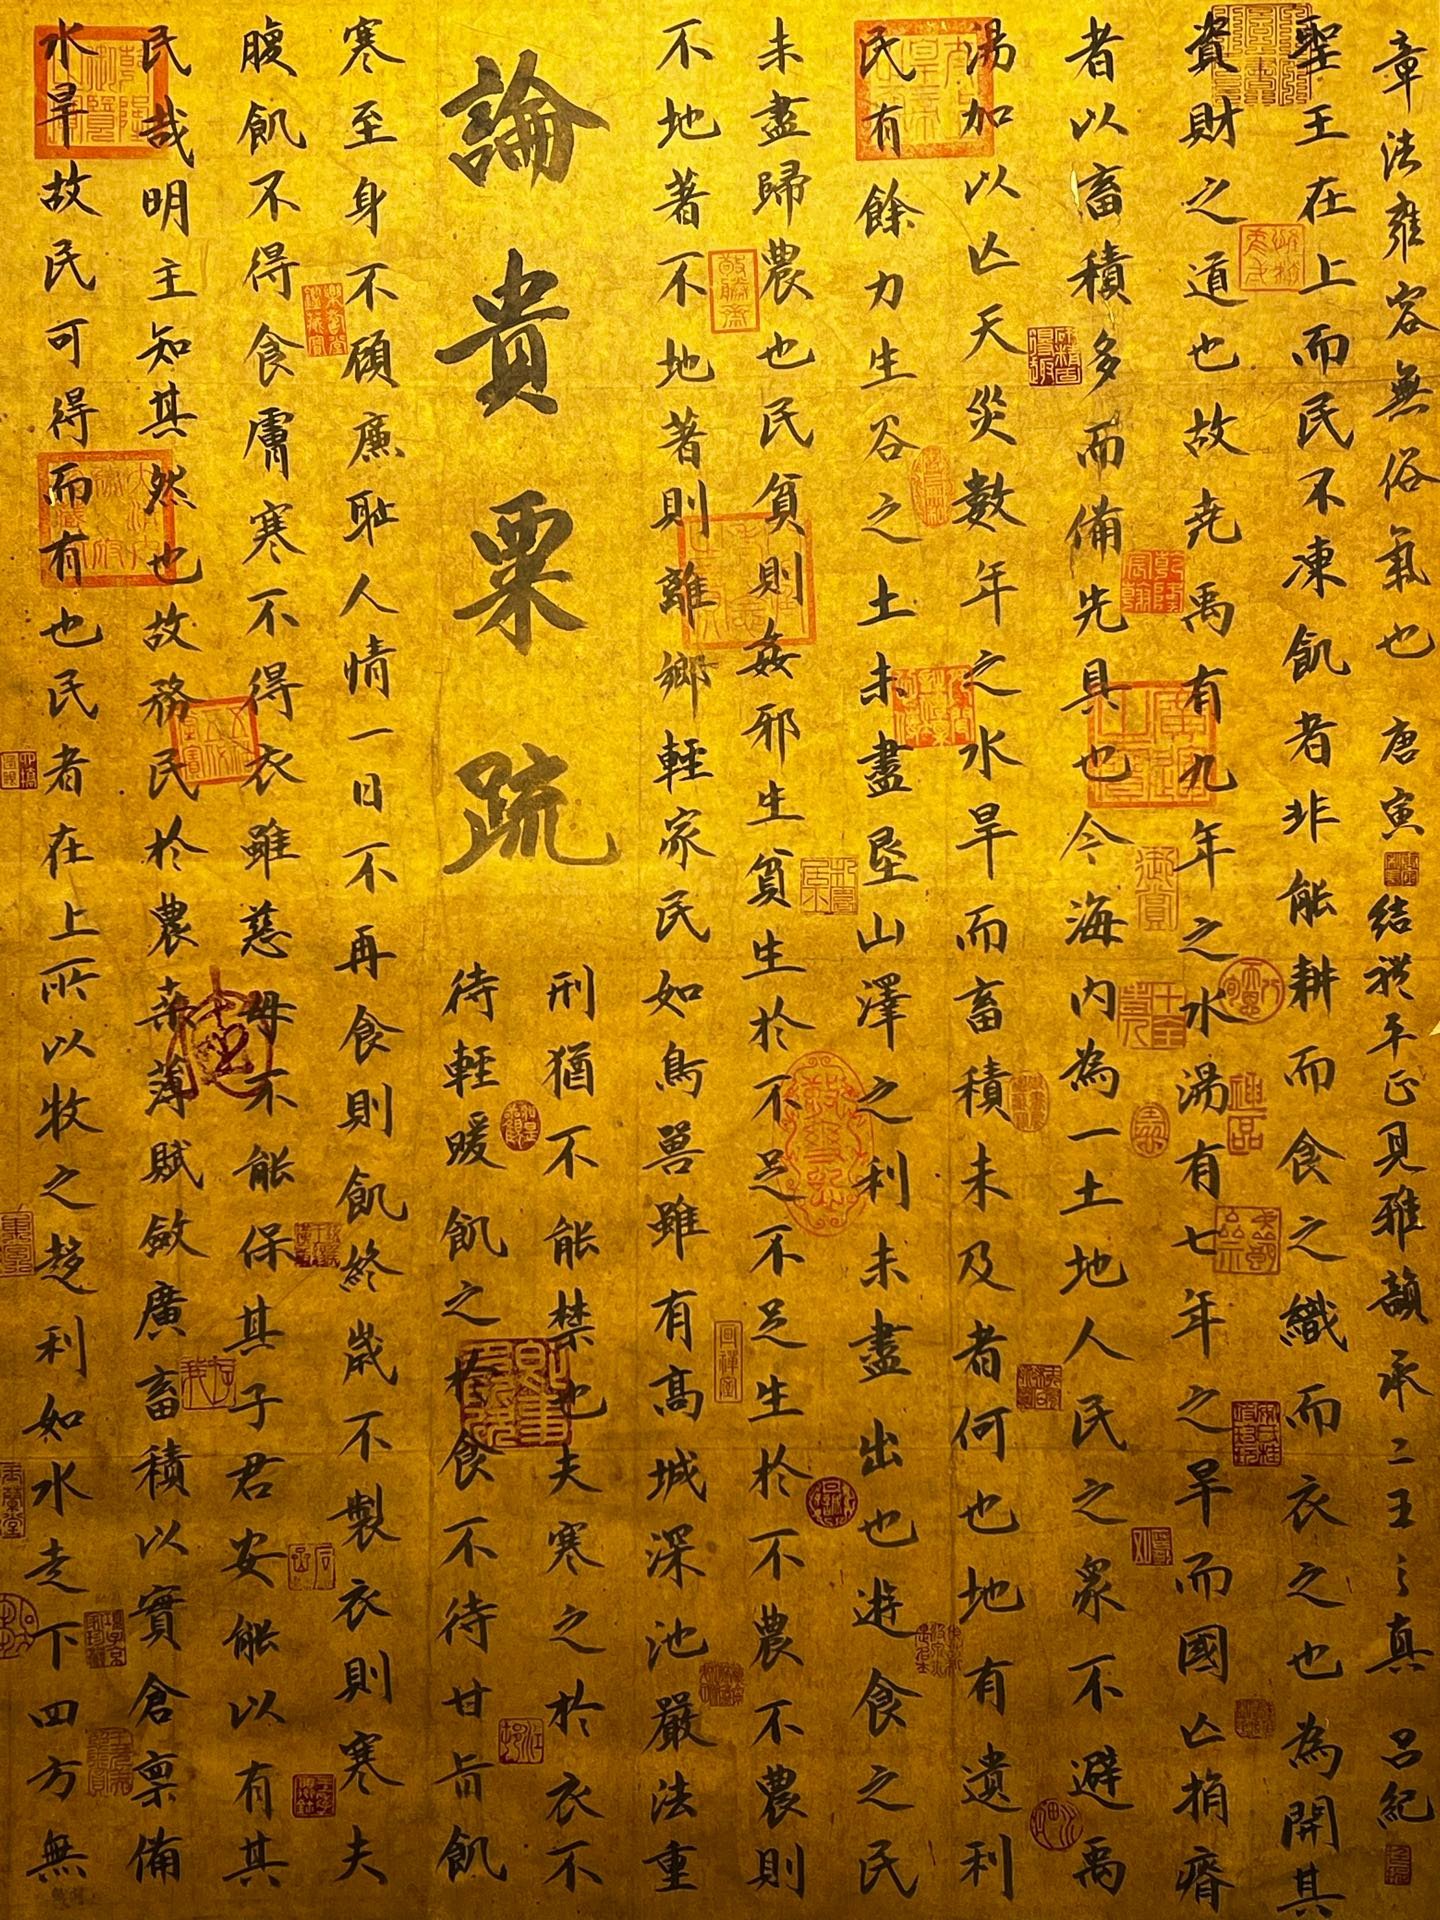 章法雍容無俗氣也 唐寅 結體平正見雅韻承二王之真 呂紀
聖王在上而民不凍飢者非能耕而食之織而衣之也為開其
資財之道也故堯禹有九年之水湯有七年之旱而國亡捐瘠
者以畜積多而備先具也今海內為一土地人民之眾不避禹
湯加以亡天災數年之水旱而畜積未及者何也地有遺利
民有餘力生谷之土未盡垦山澤之利未盡出也遊食之民
未盡歸農也民貧則姦邪生貧生於不足不足生於不農不農則
不地著不地著則離鄉輕家民如鳥獸雖有高城深池嚴法重
論貴粟疏
刑猶不能禁也夫寒之於衣不
待輕暖飢之於食不待甘旨飢
寒至身不顧廉耻人情一日不再食則飢終歲不製衣則寒夫
腹飢不得食膚寒不得衣雖慈母不能保其子君安能以有其
民哉明主知其然也故務民於農桑薄賦斂廣畜積以實倉稟備
水旱故民可得而有也民者在上所以牧之趨利如水走下四方無